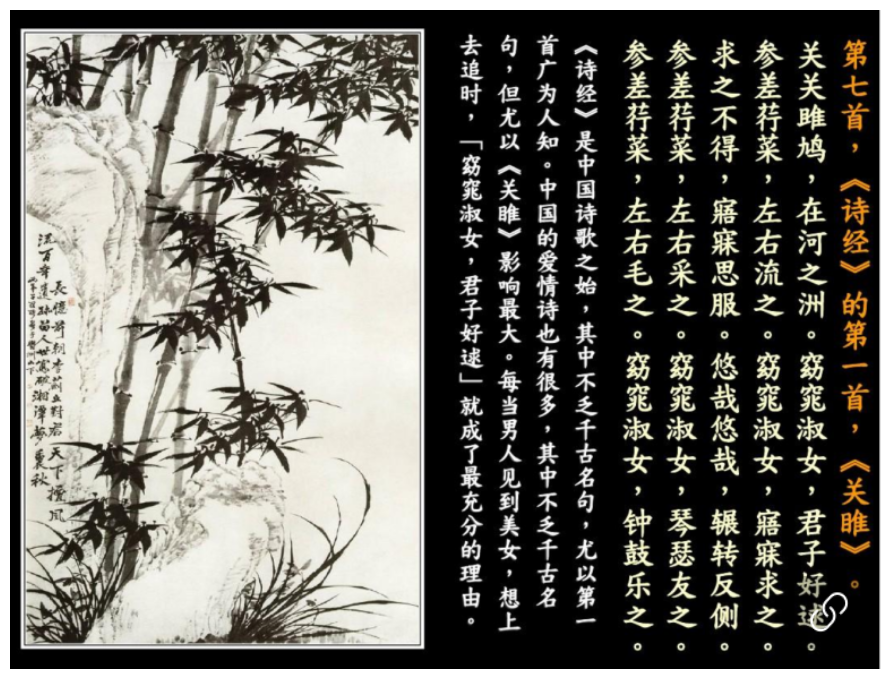 第七首，《诗经》的第一首，《关雎》。
关关雎鸠，在河之洲。窈窕淑女，君子好逑。
参差荇菜，左右流之。窈窕淑女，寤寐求之。
求之不得，寤寐思服。悠哉悠哉，辗转反侧。
参差荇菜，左右采之。窈窕淑女，琴瑟友之。
参差荇菜，左右毛之。窈窕淑女，钟鼓乐之。
《诗经》是中国诗歌之始，其中不乏千古名句，尤以第一
首广为人知。中国的爱情诗也有很多，其中不乏千古名
句，但尤以《关雎》影响最大。每当男人见到美女，想上
去追时，「窈窕淑女，君子好逑」就成了最充分的理由。